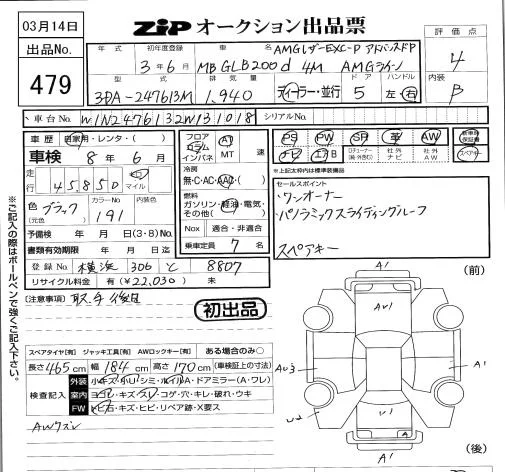 03月14日
ZIP オークション出品票
出品No.
479
年式 初年度登録 車名 評価点
AMGレザーEXC-P アドバンスドP
3年6月 MB GLB200d 4M AMGライン
4
型式 排気量 ドア ハンドル 内装
3DA-247613M 1,940 ディーラー・並行 5 左・右 B
車台No. W1N2476132W131018 シリアルNo.
車歴 自家用・レンタ・( )
車検 8年6月
走行 45,850 km マイル
色(元色) ブラック カラーNo. 191 内装色
予備検 年 月 日(3・8)No.
書類有効期限 年 月 日迄
登録No. 横浜 306 と 8807
リサイクル料金 有(¥22,030) 未
フロア コラム インパネ AT MT 速
冷房 無・C・AC・AAC
燃料 ガソリン・軽油・電気・その他( )
Nox 適合・非適合
乗車定員 7 名
PS PW SR 革 AW 新車時保証書
ナビ エアB TVチューナー(純・社外) 社外ナビ 社外AW スペアキー
*上記太枠内は標準装備品
セールスポイント
・ワンオーナー
・パノラミックスライディングルーフ
スペアキー
注意事項 取、手後日
初出品
※ご記入の際はボールペンで強くご記入下さい。
スペアタイヤ[有] ジャッキ工具[有] AWロックキー[有] ある場合のみ○
長さ465cm 幅184cm 高さ170cm (車検証上の寸法)
検査記入
外装 小キズ・小凹・シミ・ルイルA・ドアミラー(A・ワレ)
室内 ヨゴレ・キズ・スレ・コゲ・穴・キレ・破れ・ウキ
FW ヒ石・キズ・ヒビ・リペア跡・X要ス
AWクスレ
(前)
A1
AU1
AU3
A1
U2
U1
A
A1
(後)